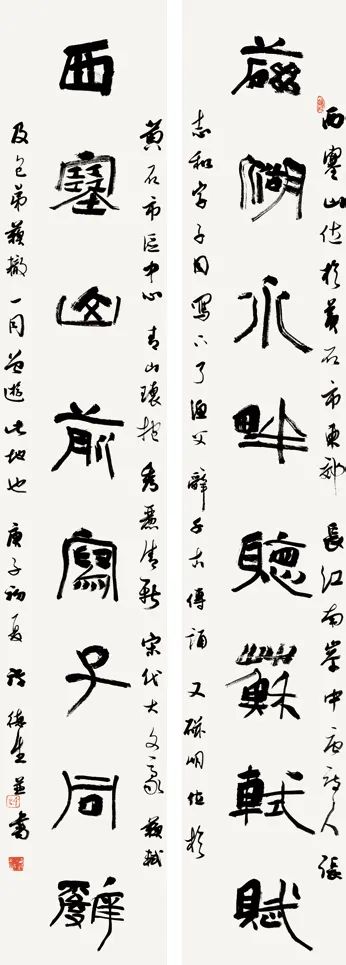 西塞山位於黃石市東郊長江南岸中唐詩人張
磁湖水畔聽蘇軾賦
志和字子同寫下了漁父辭千古傳誦又磁湖位於
黃石市區中心青山環抱秀麗清新宋代大文豪蘇軾
西塞山前寫子同辭
及包弟蘇轍一同曾遊此地也庚子初夏德生並書